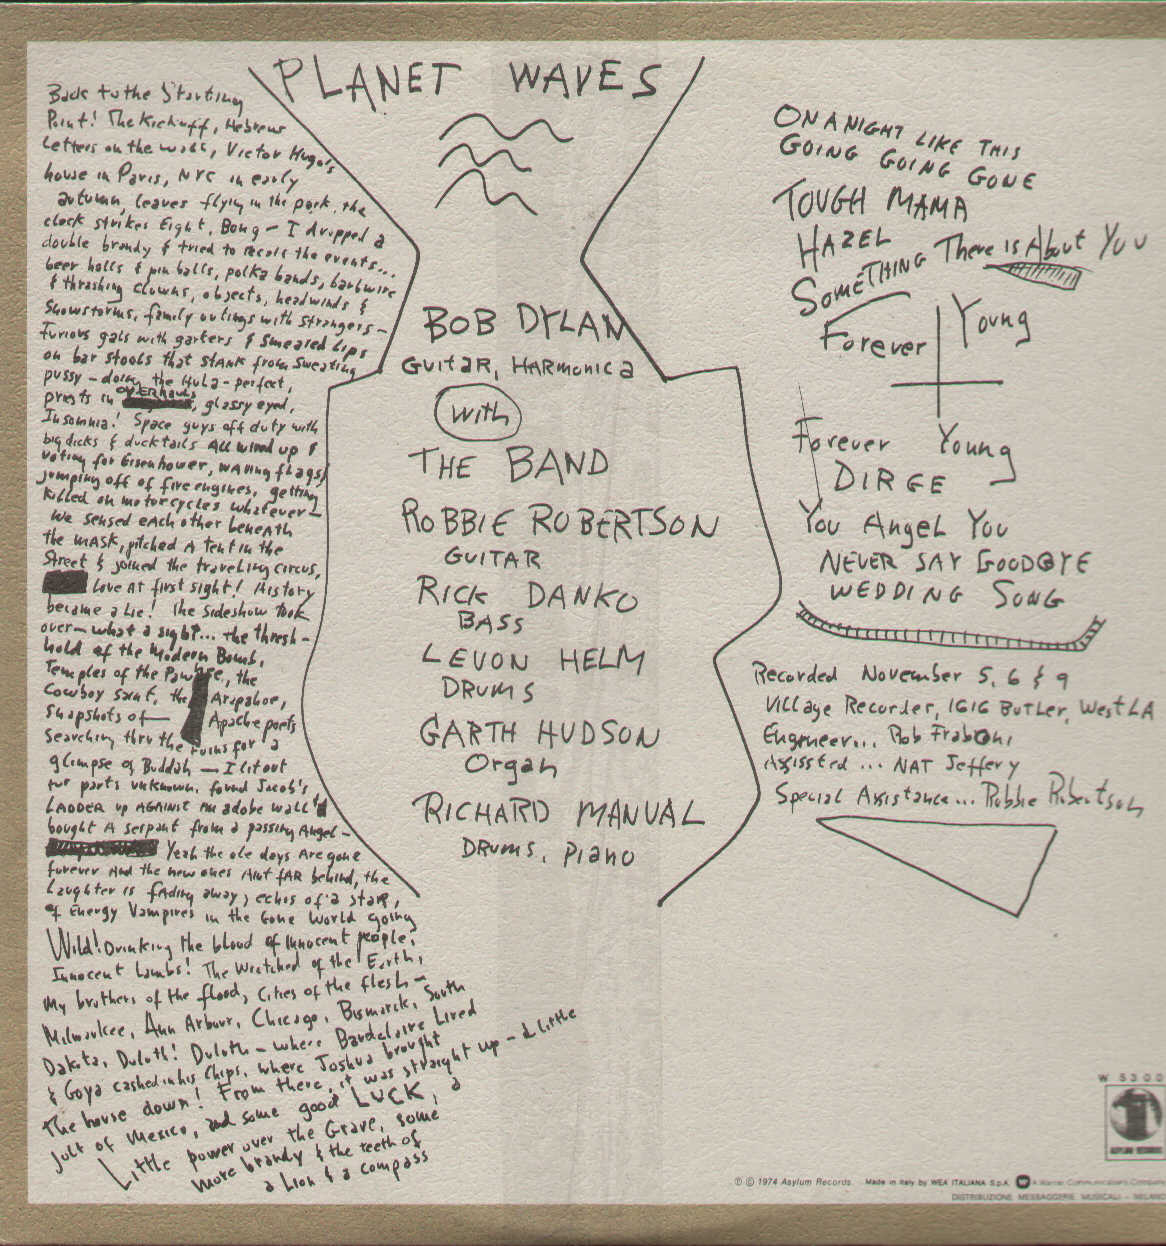 PLANET WAVES
Back to the Starting
Point! The Kickoff, Hebrew
Letters on the wall, Victor Hugo's
house in Paris, NYC in early
autumn, leaves flying in the park, the
clock strikes Eight, Bong – I dropped a
double brandy & tried to recall the events...
beer halls & pin balls, polka bands, barbwire
& thrashing clowns, objects, headwinds &
Snowstorms, family outings with strangers –
Furious gals with garters & smeared Lips
on bar stools that stank from sweating
pussy – doing the Hula – perfect,
priests in OVERhauls, glassy eyed,
Insomnia! Space guys off duty with
big dicks & ducktails All wired up &
voting for Eisenhower, waving flags &
jumping off of fire engines, getting
killed on motorcycles whatever –
We sensed each other beneath
the MASK, pitched A tent in the
Street & joined the traveling circus,
Love AT first sight! History
became a Lie! The sideshow Took
over – what a sight... the thresh-
hold of the Modern Bomb,
Temples of the Pawnee, the
Cowboy saint, the Arapahoe,
Snapshots of – Apache poets
searching thru the ruins for a
glimpse of Buddah – I lit out
for parts unknown, found Jacob's
LADDER up AGAINST An adobe wall &
bought A serpant from a passing Angel –
Yeah the ole days Are gone
forever And the new ones AInt fAR behind, the
Laughter is fading away, echos of a star,
of Energy Vampires in the Gone World going
Wild! Drinking the blood of Innocent people,
Innocent Lambs! The Wretched of the Earth,
My brothers of the flood, Cities of the flesh –
Milwaukee, Ann Arbour, Chicago, Bismarck, South
Dakita, Duluth! Duluth – where Baudelaire Lived
& Goya cashed in his Chips, where Joshua brought
The house down! From there, it was straight up – a little
jolt of Mexico, and some good LUCK, a
Little power over the Grave, some
more brandy & the teeth of
a Lion & a compass
BOB DYLAN
GuitAR, HARmonica
with
THE BAND
ROBBIE ROBERTSON
GUITAR
RICK DANKO
BASS
LEVON HELM
DRUMS
GARTH HUDSON
Organ
RICHARD MANUAL
DRUMS, piano
ON A NIGHT LIKE THIS
GOING GOING GONE
TOUGH MAMA
HAZEL
SOMETHING There is About You
Forever Young
Forever Young
DIRGE
You Angel You
NEVER SAY GOODBYE
WEDDING SONG
Recorded November 5, 6 & 9
Village Recorder, 1616 BUTLER, West LA
Engineer... Rob Fraboni
Assissted ... NAT Jeffery
Special Assistance... Robbie Robertson
W 5300
ASYLUM RECORDS
℗ © 1974 Asylum Records. Made in Italy by WEA ITALIANA S.p.A. A Warner Communications Company
DISTRIBUZIONE MESSAGGERIE MUSICALI – MILANO